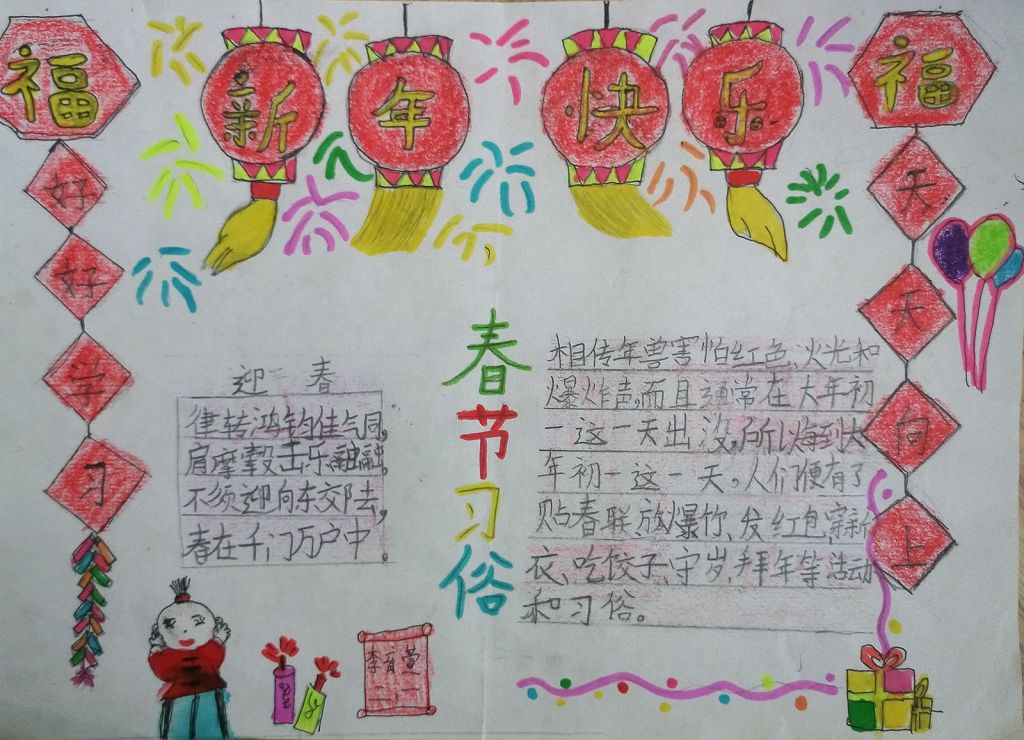 福
新年快乐
福
好好学习
天天向上
迎春
律转鸿钧佳气同,
肩摩毂击乐融融,
不须迎向东郊去,
春在千门万户中。
春节习俗
相传年兽害怕红色、火光和
爆炸声,而且通常在大年初
一这一天出没,所以每到大
年初一这一天。人们便有了
贴春联、放爆竹、发红包、穿新
衣、吃饺子、守岁、拜年等活动
和习俗。